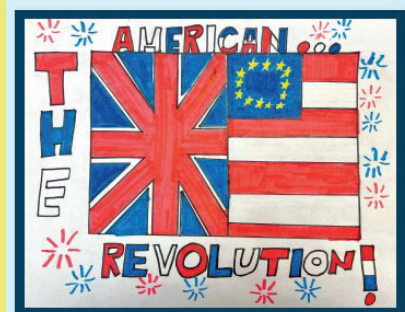 THE
AMERICAN...
REVOLUTION!